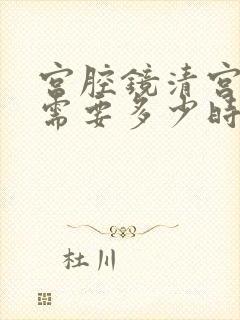 宫腔镜清宫
需要多少时
杜川